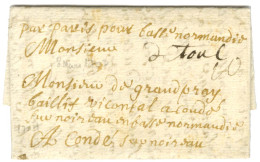 par paris pour basse normandie
Monsieur
De Toul
Monsieur de grandpray
baillif viconial a Condé
sur noireau en basse normandie
A Condé surnoireau